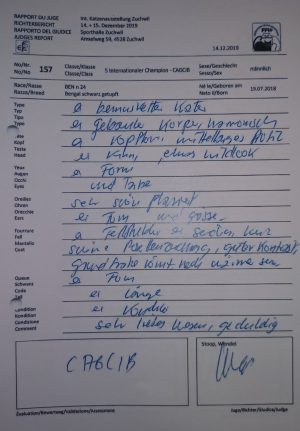 RAPPORT DU JUGE
RICHTERBERICHT
RAPPORTO DEL GIUDICE
JUDGES REPORT
Int. Katzenausstellung Zuchwil
14. – 15. Dezember 2019
Sporthalle Zuchwil
Amselweg 59, 4528 Zuchwil
FFH
14.12.2019
No/Nr. 157
Classe/Klasse 5 Internationaler Champion - CAGCIB
Classe/Class
Sexe/Geschlecht männlich
Sesso/Sex
Race/Rasse BEN n 24
Razza/Breed Bengal schwarz getupft
Né le/Geboren am 19.07.2018
Nato il/Born
Type
Typ
Tipo
Type
Tête
Kopf
Testa
Head
Yeux
Augen
Occhi
Eyes
Oreilles
Ohren
Orecchie
Ears
Fourrure
Fell
Mantello
Coat
Queue
Schwanz
Coda
Tail
Condition
Kondition
Condizione
Comment
a bemuskelter Kater
ex Körper, harmonisch
a Kopfform, mittellanges Profil
ex Kinn, etwas
a Form
und Farbe
sehr schön plaziert
ex Form und Grösse
a ex kurz
guter Kontrast,
Grundfarbe könnte noch wärmer sein
a Form
ex Länge
ex Kondition
sehr liebes Wesen, geduldig
CAGCIB
Stoop, Wendel
Evaluation/Bewertung/Validazione/Assessment
Juge/Richter/Giudice/Judge